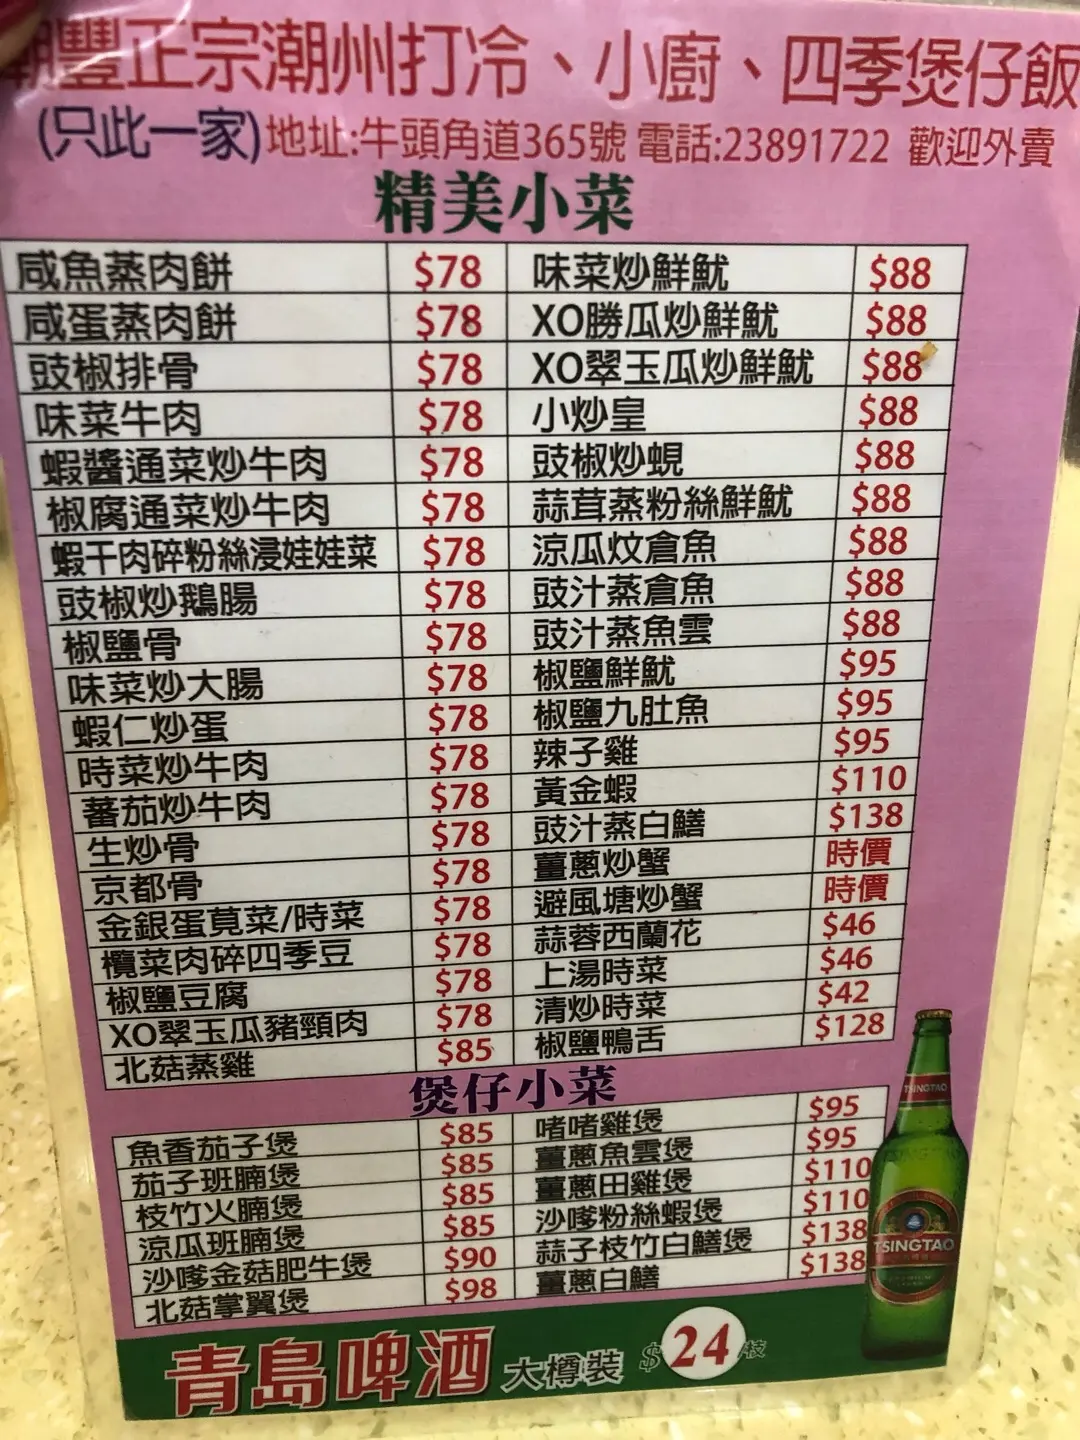 潮豐正宗潮州打冷、小廚、四季煲仔飯
(只此一家)地址:牛頭角道365號 電話:23891722 歡迎外賣
精美小菜
咸魚蒸肉餅 $78 味菜炒鮮魷 $88
咸蛋蒸肉餅 $78 XO勝瓜炒鮮魷 $88
豉椒排骨 $78 XO翠玉瓜炒鮮魷 $88
味菜牛肉 $78 小炒皇 $88
蝦醬通菜炒牛肉 $78 豉椒炒蜆 $88
椒腐通菜炒牛肉 $78 蒜茸蒸粉絲鮮魷 $88
蝦干肉碎粉絲浸娃娃菜 $78 涼瓜炆倉魚 $88
豉椒炒鵝腸 $78 豉汁蒸倉魚 $88
椒鹽骨 $78 豉汁蒸魚雲 $88
味菜炒大腸 $78 椒鹽鮮魷 $95
蝦仁炒蛋 $78 椒鹽九肚魚 $95
時菜炒牛肉 $78 辣子雞 $95
蕃茄炒牛肉 $78 黃金蝦 $110
生炒骨 $78 豉汁蒸白鱔 $138
京都骨 $78 薑蔥炒蟹 時價
金銀蛋莧菜/時菜 $78 避風塘炒蟹 時價
欖菜肉碎四季豆 $78 蒜蓉西蘭花 $46
椒鹽豆腐 $78 上湯時菜 $46
XO翠玉瓜豬頸肉 $78 清炒時菜 $42
北菇蒸雞 $85 椒鹽鴨舌 $128
煲仔小菜
魚香茄子煲 $85 啫啫雞煲 $95
茄子班腩煲 $85 薑蔥魚雲煲 $95
枝竹火腩煲 $85 薑蔥田雞煲 $110
涼瓜班腩煲 $85 沙嗲粉絲蝦煲 $110
沙嗲金菇肥牛煲 $90 蒜子枝竹白鱔煲 $138
北菇掌翼煲 $98 薑蔥白鱔 $138
TSINGTAO
TSINGTAO
青島啤酒 大樽裝 $24/枝